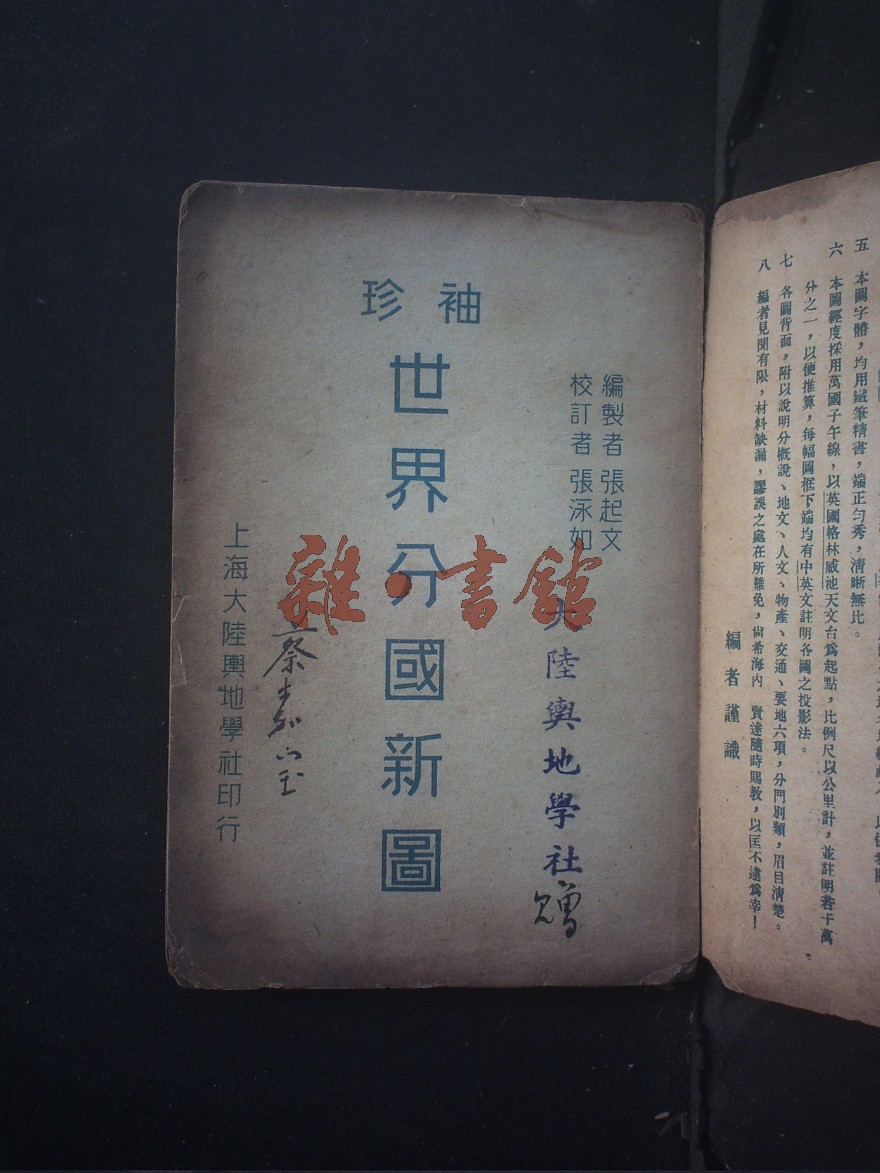 五 本圖字體，均用鐵筆精書，端正勻秀，清晰無比。
六 本圖經度採用萬國子午線，以英國格林威池天文台為起點，比例尺以公里計，並註明若干萬
分之一，以便推算，每幅圖框下端均有中英文註明各圖之投影法。
七 各圖背面，附以說明分概說、地文、人文、物產、交通、要地六項，分門別類，眉目清楚。
八 編者見聞有限，材料缺漏，謬誤之處在所難免，尙希海內 賢達隨時賜教，以匡不逮爲幸！
編者謹識
編製者 張起文
校訂者 張泳如
大陸輿地學社
贈
袖珍
世界分國新圖
上海大陸輿地學社印行
雜·書館